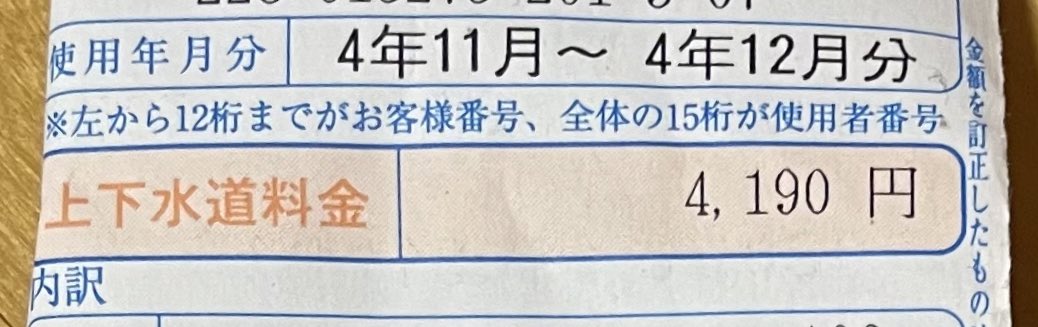 使用年月分 4年11月～ 4年12月分
※左から12桁までがお客様番号、全体の15桁が使用者番号
上下水道料金 4,190 円
内訳
金額を訂正したもの